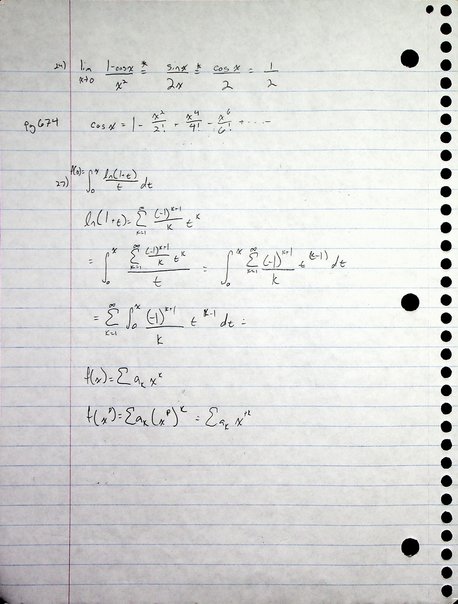 24) lim x→0 (1-cosx)/x² *= sinx/2x *= cosx/2 = 1/2
pg 674 cosx = 1 - x²/2! + x⁴/4! - x⁶/6! + ...
27) f(x)= ∫₀ˣ ln(1+t)/t dt
ln(1+t) = ∑_{k=1}^∞ (-1)^{k+1}/k t^k
= ∫₀ˣ (∑_{k=1}^∞ (-1)^{k+1}/k t^k)/t = ∫₀ˣ ∑_{k=1}^∞ (-1)^{k+1}/k t^{(k-1)} dt
= ∑_{k=1}^∞ ∫₀ˣ (-1)^{k+1}/k t^{k-1} dt =
f(x) = ∑ a_k x^k
f(x^p) = ∑ a_k (x^p)^k = ∑ a_k x^{pk}